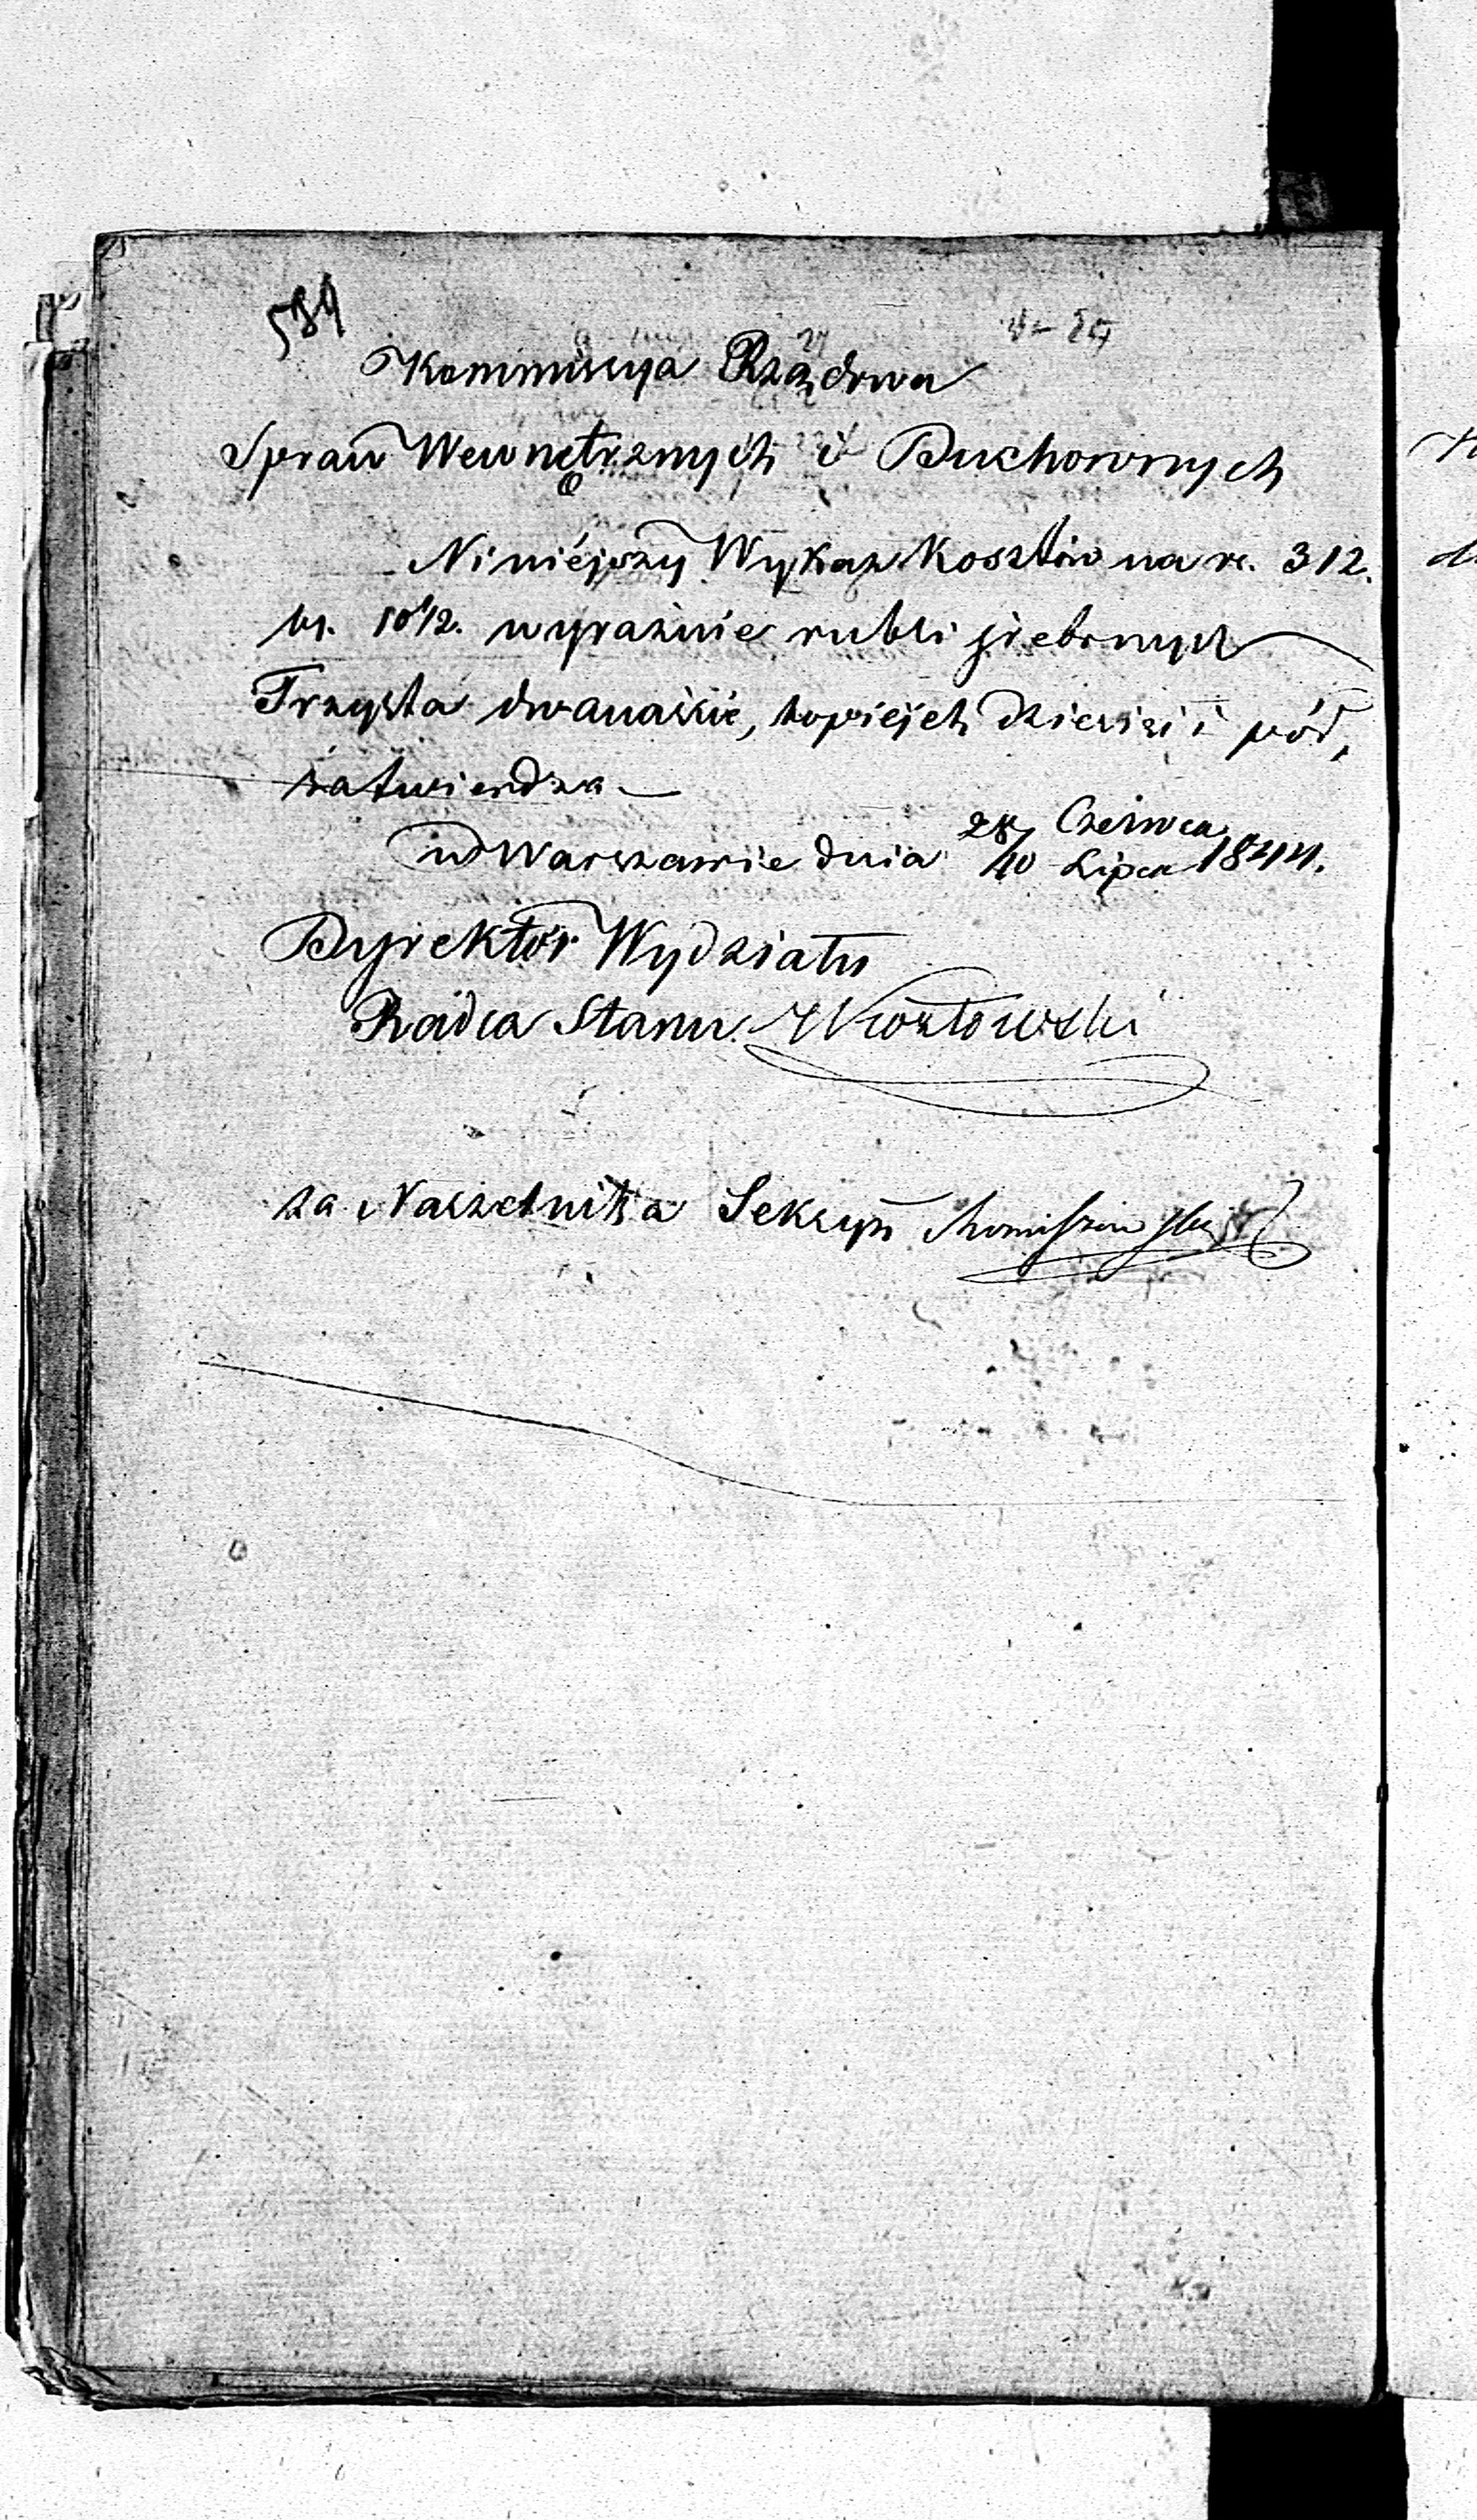 584
Kommissya Rządowa
Spraw Wewnętrznych i Duchownych
Niniéjszy Wykaz Kosztów na rs. 312.
kp. 10 1/2. wyraźnie rubli srebrnych
Trzysta dwanaście, kopiejek dziesięć i pół,
zatwierdza —
w Warszawie dnia 28/10 Czerwca/Lipca 1844.
Dyrektor Wydziału
Radca Stanu
za Naczelnika Sekcyi